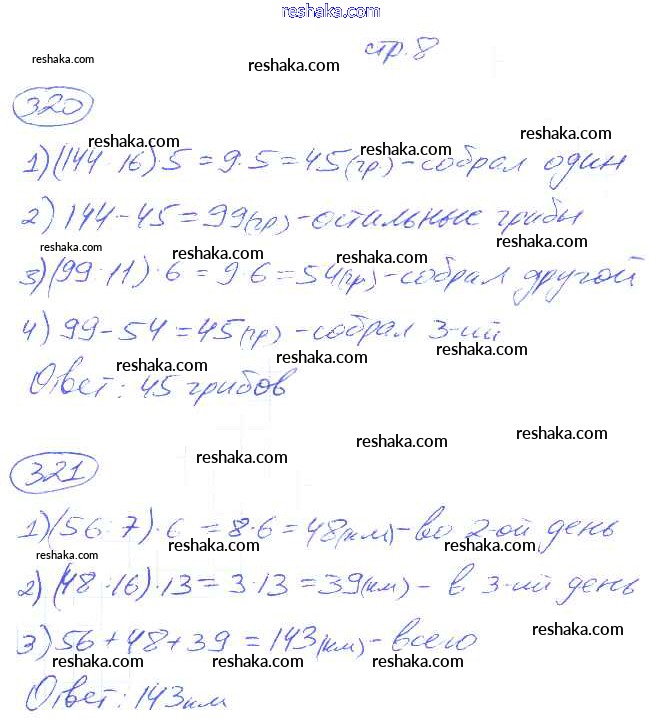 reshaka.com
стр. 8
reshaka.com reshaka.com
320
reshaka.com reshaka.com
1) (144 : 16) · 5 = 9 · 5 = 45 (гр.) - собрал один
2) 144 - 45 = 99 (гр) - остальные грибы
reshaka.com reshaka.com reshaka.com
3) (99 : 11) · 6 = 9 · 6 = 54 (гр) - собрал другой
4) 99 - 54 = 45 (гр) - собрал 3-ий
reshaka.com reshaka.com reshaka.com
Ответ: 45 грибов
reshaka.com reshaka.com reshaka.com
321
1) (56 : 7) · 6 = 8 · 6 = 48 (км) - во 2-ой день
reshaka.com reshaka.com reshaka.com
2) (48 : 16) · 13 = 3 · 13 = 39 (км) - в 3-ий день
reshaka.com
3) 56 + 48 + 39 = 143 (км) - всего
reshaka.com reshaka.com reshaka.com
Ответ: 143 км